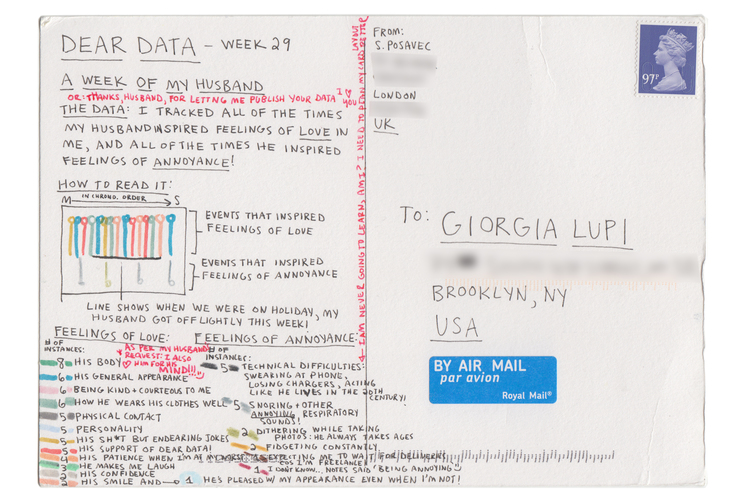 DEAR DATA - WEEK 29
A WEEK OF MY HUSBAND
OR: THANKS, HUSBAND, FOR LETTING ME PUBLISH YOUR DATA I ♡ YOU
THE DATA: I TRACKED ALL OF THE TIMES
MY HUSBAND INSPIRED FEELINGS OF LOVE IN
ME, AND ALL OF THE TIMES HE INSPIRED
FEELINGS OF ANNOYANCE!
HOW TO READ IT:
M IN CHRONO. ORDER → S
EVENTS THAT INSPIRED
FEELINGS OF LOVE
EVENTS THAT INSPIRED
FEELINGS OF ANNOYANCE
LINE SHOWS WHEN WE WERE ON HOLIDAY, MY
HUSBAND GOT OFF LIGHTLY THIS WEEK!
FEELINGS OF LOVE:
# OF
INSTANCES:
AS PER MY HUSBAND'S
REQUEST: I ALSO
♡ HIM FOR HIS
MIND!!!
8 HIS BODY
6 HIS GENERAL APPEARANCE
6 BEING KIND + COURTEOUS TO ME
6 HOW HE WEARS HIS CLOTHES WELL
5 PHYSICAL CONTACT
5 PERSONALITY
5 HIS SH*T BUT ENDEARING JOKES
5 HIS SUPPORT OF DEAR DATA!
4 HIS PATIENCE WHEN I'M AT MY WORST
3 HE MAKES ME LAUGH
2 HIS CONFIDENCE
2 HIS SMILE AND → 1 HE'S PLEASED W/ MY APPEARANCE EVEN WHEN I'M NOT!
FEELINGS OF ANNOYANCE:
# OF
INSTANCES:
5 TECHNICAL DIFFICULTIES:
SWEARING AT PHONE,
LOSING CHARGERS, ACTING
LIKE HE LIVES IN THE 20TH
CENTURY!
5 SNORING + OTHER
ANNOYING RESPIRATORY
SOUNDS!
2 DITHERING WHILE TAKING
PHOTOS: HE ALWAYS TAKES AGES
2 FIDGETING CONSTANTLY
1 EXPECTING ME TO WAIT FOR DELIVERIES
COS I'M FREELANCE!
1 I DON'T KNOW... NOTES SAID 'BEING ANNOYING'
← I AM NEVER GOING TO LEARN, AM I? I NEED TO PLAN MY CARD BETTER
LAYOUT
FROM:
S. POSAVEC
LONDON
UK
97P
TO: GIORGIA LUPI
BROOKLYN, NY
USA
BY AIR MAIL
par avion
Royal Mail®